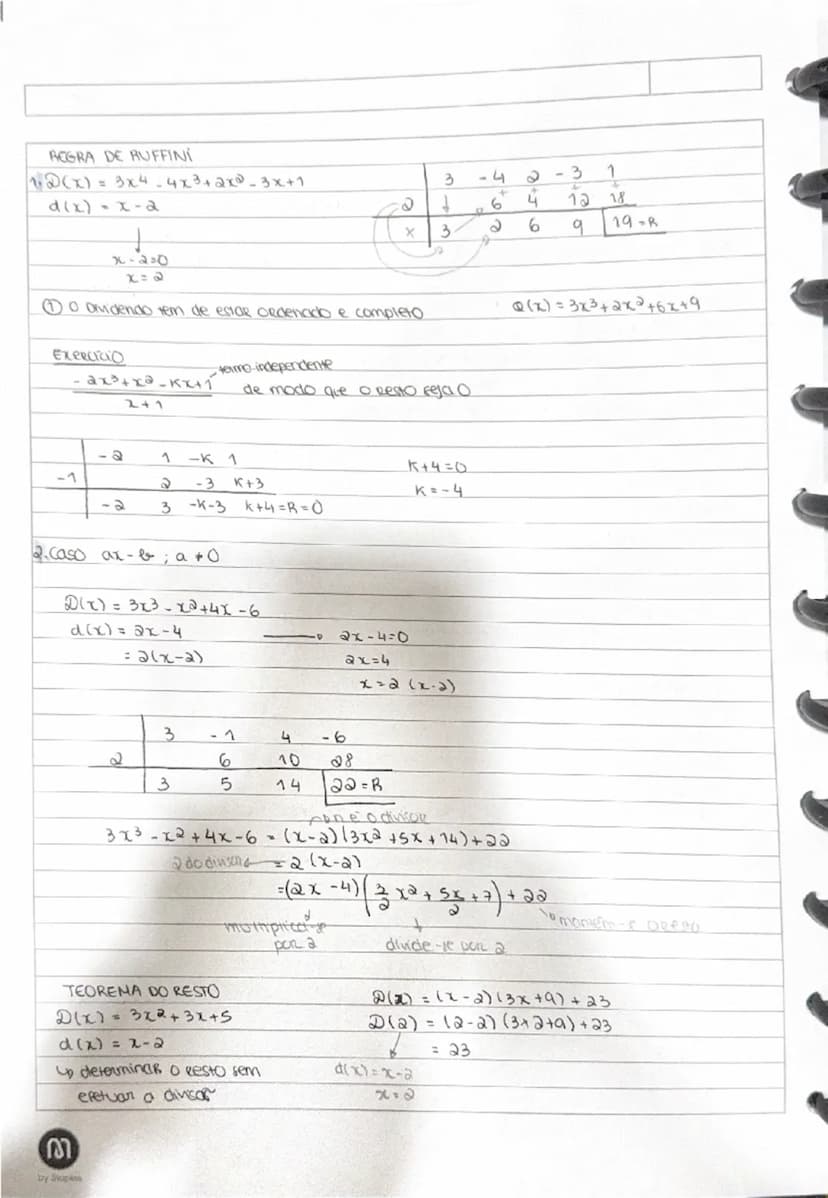 REGRA DE RUFFINI
1. D(x) = 3x⁴ - 4x³ + 2x² - 3x + 1
d(x) = x - 2
3 - 4 2 - 3 1
2 ↓ 6 4 12 18
x 3 2 6 9 19 = R
x - 2 = 0
x = 2
① O dividendo tem de estar ordenado e completo
Q(x) = 3x³ + 2x² + 6x + 9
Exercício
termo independente
- 2x³ + x² - Kx + 1 de modo que o resto seja 0
x + 1
- 2 1 - K 1
- 1 2 - 3 K+3
- 2 3 -K-3 K+4 = R = 0
K + 4 = 0
K = - 4
2. Caso ax - b ; a ≠ 0
D(x) = 3x³ - x² + 4x - 6
d(x) = 2x - 4 → 2x - 4 = 0
= 2(x - 2) 2x = 4
x = 2 (x - 2)
3 - 1 4 - 6
2 6 10 28
3 5 14 22 = R
não é o divisor
3x³ - x² + 4x - 6 = (x - 2)(3x² + 5x + 14) + 22
= 2(x - 2)
= (2x - 4)(3/2 x² + 5x/2 + 7) + 22
multiplica-se por 2
divide-se por 2
mantém-se o resto
TEOREMA DO RESTO
D(x) = 3x² + 3x + 5
d(x) = x - 2
↳ determinar o resto sem
efetuar a divisão
D(x) = (x - 2)(3x + 9) + 23
D(2) = (2 - 2)(3×2 + 9) + 23
= 23
d(x) = x - 2
x = 2
M
by Staples